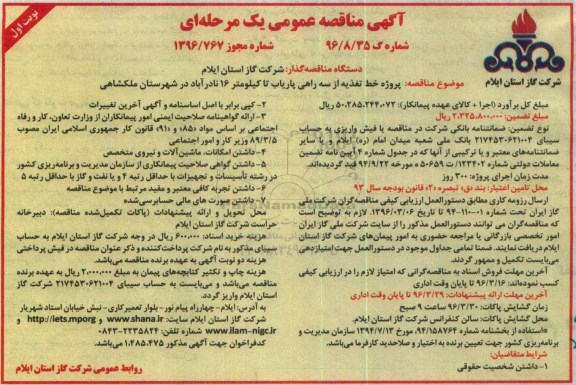 نوبت اول
آگهی مناقصه عمومی یک مرحله‌ای
شماره گ ۹۶/۸/۳۵
شماره مجوز ۱۳۹۶/۷۶۷
شرکت گاز استان ایلام
دستگاه مناقصه‌گذار: شرکت گاز استان ایلام
موضوع مناقصه: پروژه خط تغذیه از سه راهی پاریاب تا کیلومتر ۱۶ نادرآباد در شهرستان ملکشاهی
مبلغ کل برآورد (اجرا + کالای عهده پیمانکار): ۵۰،۲۸۵،۲۴۴،۰۷۲ ریال
مبلغ تضمین: ۲،۳۲۵،۸۰۰،۰۰۰ ریال
نوع تضمین: ضمانتنامه بانکی شرکت در مناقصه یا فیش واریزی به حساب
سیبای ۲۱۷۴۵۳۰۶۲۱۰۰۴ بانک ملی شعبه میدان امام (ره) ایلام و یا سایر
ضمانتنامه‌های معتبر و یا ترکیبی از آنها که در جدول شماره ۴ آیین نامه تضمین
معاملات دولتی شماره ۱۲۳۴۰۲/ت ۵۰۶۵۹ ه مورخ ۹۴/۹/۲۲ قید گردیده‌اند.
مدت زمان اجرای پروژه: ۳۰۰ روز
محل تامین اعتبار: بند «ق» تبصره «۲» قانون بودجه سال ۹۳
ارسال رزومه کاری مطابق دستورالعمل ارزیابی کیفی مناقصه‌گران شرکت ملی
گاز ایران تحت شماره ۰۱-۱۱۰-۹۴ تا تاریخ ۱۳۹۶/۰۳/۰۶. لازم به توضیح است
که مناقصه‌گران می توانند دستورالعمل مذکور را از سایت شرکت ملی گاز ایران
امور تخصصی بازرگانی یا مراجعه حضوری به امور پیمان‌های شرکت گاز استان
ایلام دریافت نمایند. ضمنا تمامی جداول موجود در دستورالعمل جهت امتیازدهی
می‌بایست تکمیل و ممهور گردند.
آخرین مهلت فروش اسناد به مناقصه‌گرانی که امتیاز لازم را در ارزیابی کیفی
کسب نموده‌اند: ۹۶/۳/۱۶ تا پایان وقت اداری
آخرین مهلت ارائه پیشنهادات: ۹۶/۳/۲۹ تا پایان وقت اداری
زمان گشایش پاکات: ۹۶/۳/۳۰ ساعت ۹ صبح
محل گشایش پاکات: سالن کنفرانس شرکت گاز استان ایلام.
*استفاده از بخشنامه شماره ۹۴/۱۵۸۷۶۴ مورخ ۱۳۹۴/۷/۱۲ سازمان مدیریت و
برنامه‌ریزی کشور جهت تعیین برنده به اختیار و صلاحدید کارفرما می‌باشد.
شرایط متقاضیان:
۱- داشتن شخصیت حقوقی
۲- کپی برابر با اصل اساسنامه و آگهی آخرین تغییرات
۳- ارائه گواهینامه صلاحیت ایمنی امور پیمانکاران از وزارت تعاون، کار و رفاه
اجتماعی بر اساس مواد «۸۵» و «۹۱» قانون کار جمهوری اسلامی ایران مصوب
۸۹/۳/۵ وزیر کار و امور اجتماعی
۴- داشتن امکانات، ماشین آلات و نیروی متخصص
۵- داشتن گواهی صلاحیت پیمانکاری از سازمان مدیریت و برنامه‌ریزی کشور
در رشته تأسیسات و تجهیزات با حداقل رتبه ۴ و یا نفت و گاز با حداقل رتبه ۵
۶- داشتن تجربه کافی معتبر و مفید مرتبط با موضوع مناقصه
۷- داشتن صورت های مالی حسابرسی‌شده
محل تحویل و ارائه پیشنهادات (پاکات تکمیل‌شده مناقصه): دبیرخانه
حراست شرکت گاز ایلام
هزینه خرید اسناد: ۶۰۰،۰۰۰ ریال در وجه شرکت گاز استان ایلام به حساب
سیبای مذکور به نام شرکت پرداخت‌کننده و ذکر عنوان مناقصه در فیش پرداختی
هزینه دو نوبت آگهی به عهده برنده مناقصه می‌باشد.
هزینه چاپ و تکثیر کتابچه‌های پیمان به مبلغ ۲،۰۰۰،۰۰۰ ریال به عهده برنده
مناقصه می‌باشد و می‌بایست به حساب سیبای ۲۱۷۴۵۳۰۶۲۱۰۰۴ شرکت گاز
استان ایلام واریز گردد.
به آدرس: ایلام- چهارراه پیام نور- بلوار تعمیرکاری- نبش خیابان استاد شهریار
شرکت گاز استان ایلام سایت: www.shana.ir و http://iets.mporg و
www.ilam-nigc.ir شماره تلفن: ۲۲۳۵۸۴۴-۰۸۴۳
کدفراخوان جهت آگهی مذکور ۱،۴۸۵،۴۷۵ می‌باشد.
روابط عمومی شرکت گاز استان ایلام